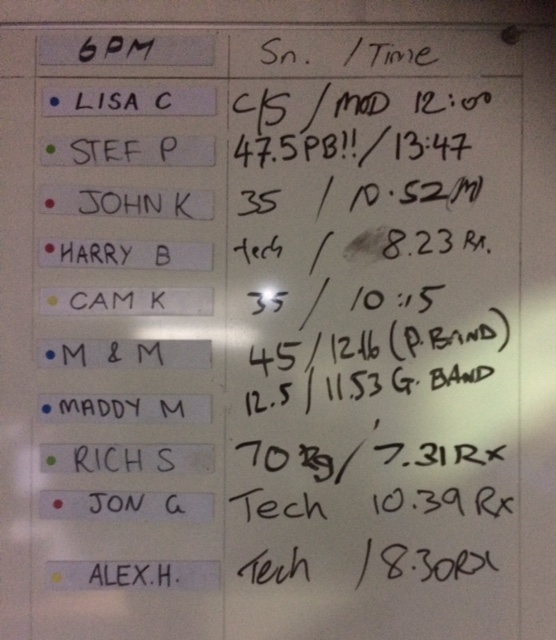 6PM Sn. / Time
LISA C C/S / MOD 12:00
STEF P 47.5 PB!! / 13:47
JOHN K 35 / 10.52 (M)
HARRY B tech / 8.23 Rx.
CAM K 35 / 10:15
M & M 45 / 12.16 (P. BAND)
MADDY M 12.5 / 11.53 G. BAND
RICH S 70 kg / 7.31 Rx
JON G Tech 10.39 Rx
ALEX.H. Tech / 8.30 RX